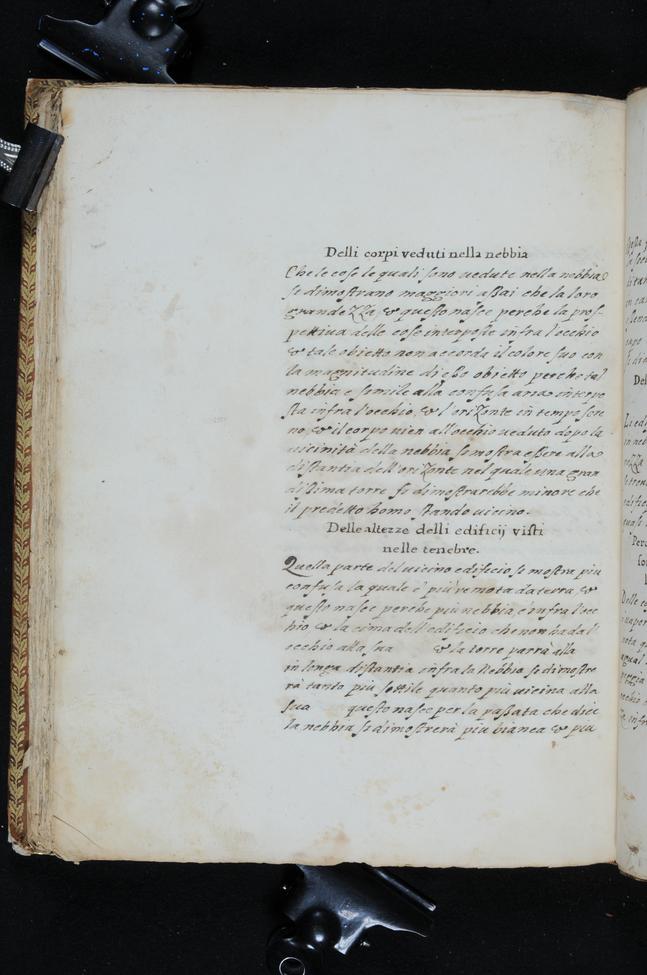 Delli corpi veduti nella nebbia
Che le cose le quali sono uedute nella nebbia
si dimostrano maggiori aßai che la loro
grandeZZa, & questo nasce perche la pros-
pettiua delle cose interposte infra l'occhio
& tale obietto non accorda il colore suo con
la magnitudine di eßo obietto perche tal
nebbia e simile alla confusa aria interpo
sta infra l'occhio, & l'oriZonte in tempo sere
no, & il corpo uicn all'occhio ueduto dopo la
uicinità della nebbia si mostra eßere alla
distantia dell'oriZonte nel quale una gran
dißima torre si dimostrarebbe minore che
il predetto homo stando uicino.
Delle altezze delli edificij visti
nelle tenebre.
Quella parte del uicino edificio si mostra piu
confusa la quale è più remota da terra, &
questo nasce perche più nebbia è infra l'occ
hio, & la cima dell'edificio che non ha dal
occhio alla sua & la torre parrà alla
in longa distantia infra la Nebbia si dimostre
rà tanto piu sottile quanto più uicina alla
sua questo nasce per la paßata che dice
la nebbia si dimostrerà piu bianca & piu
Del